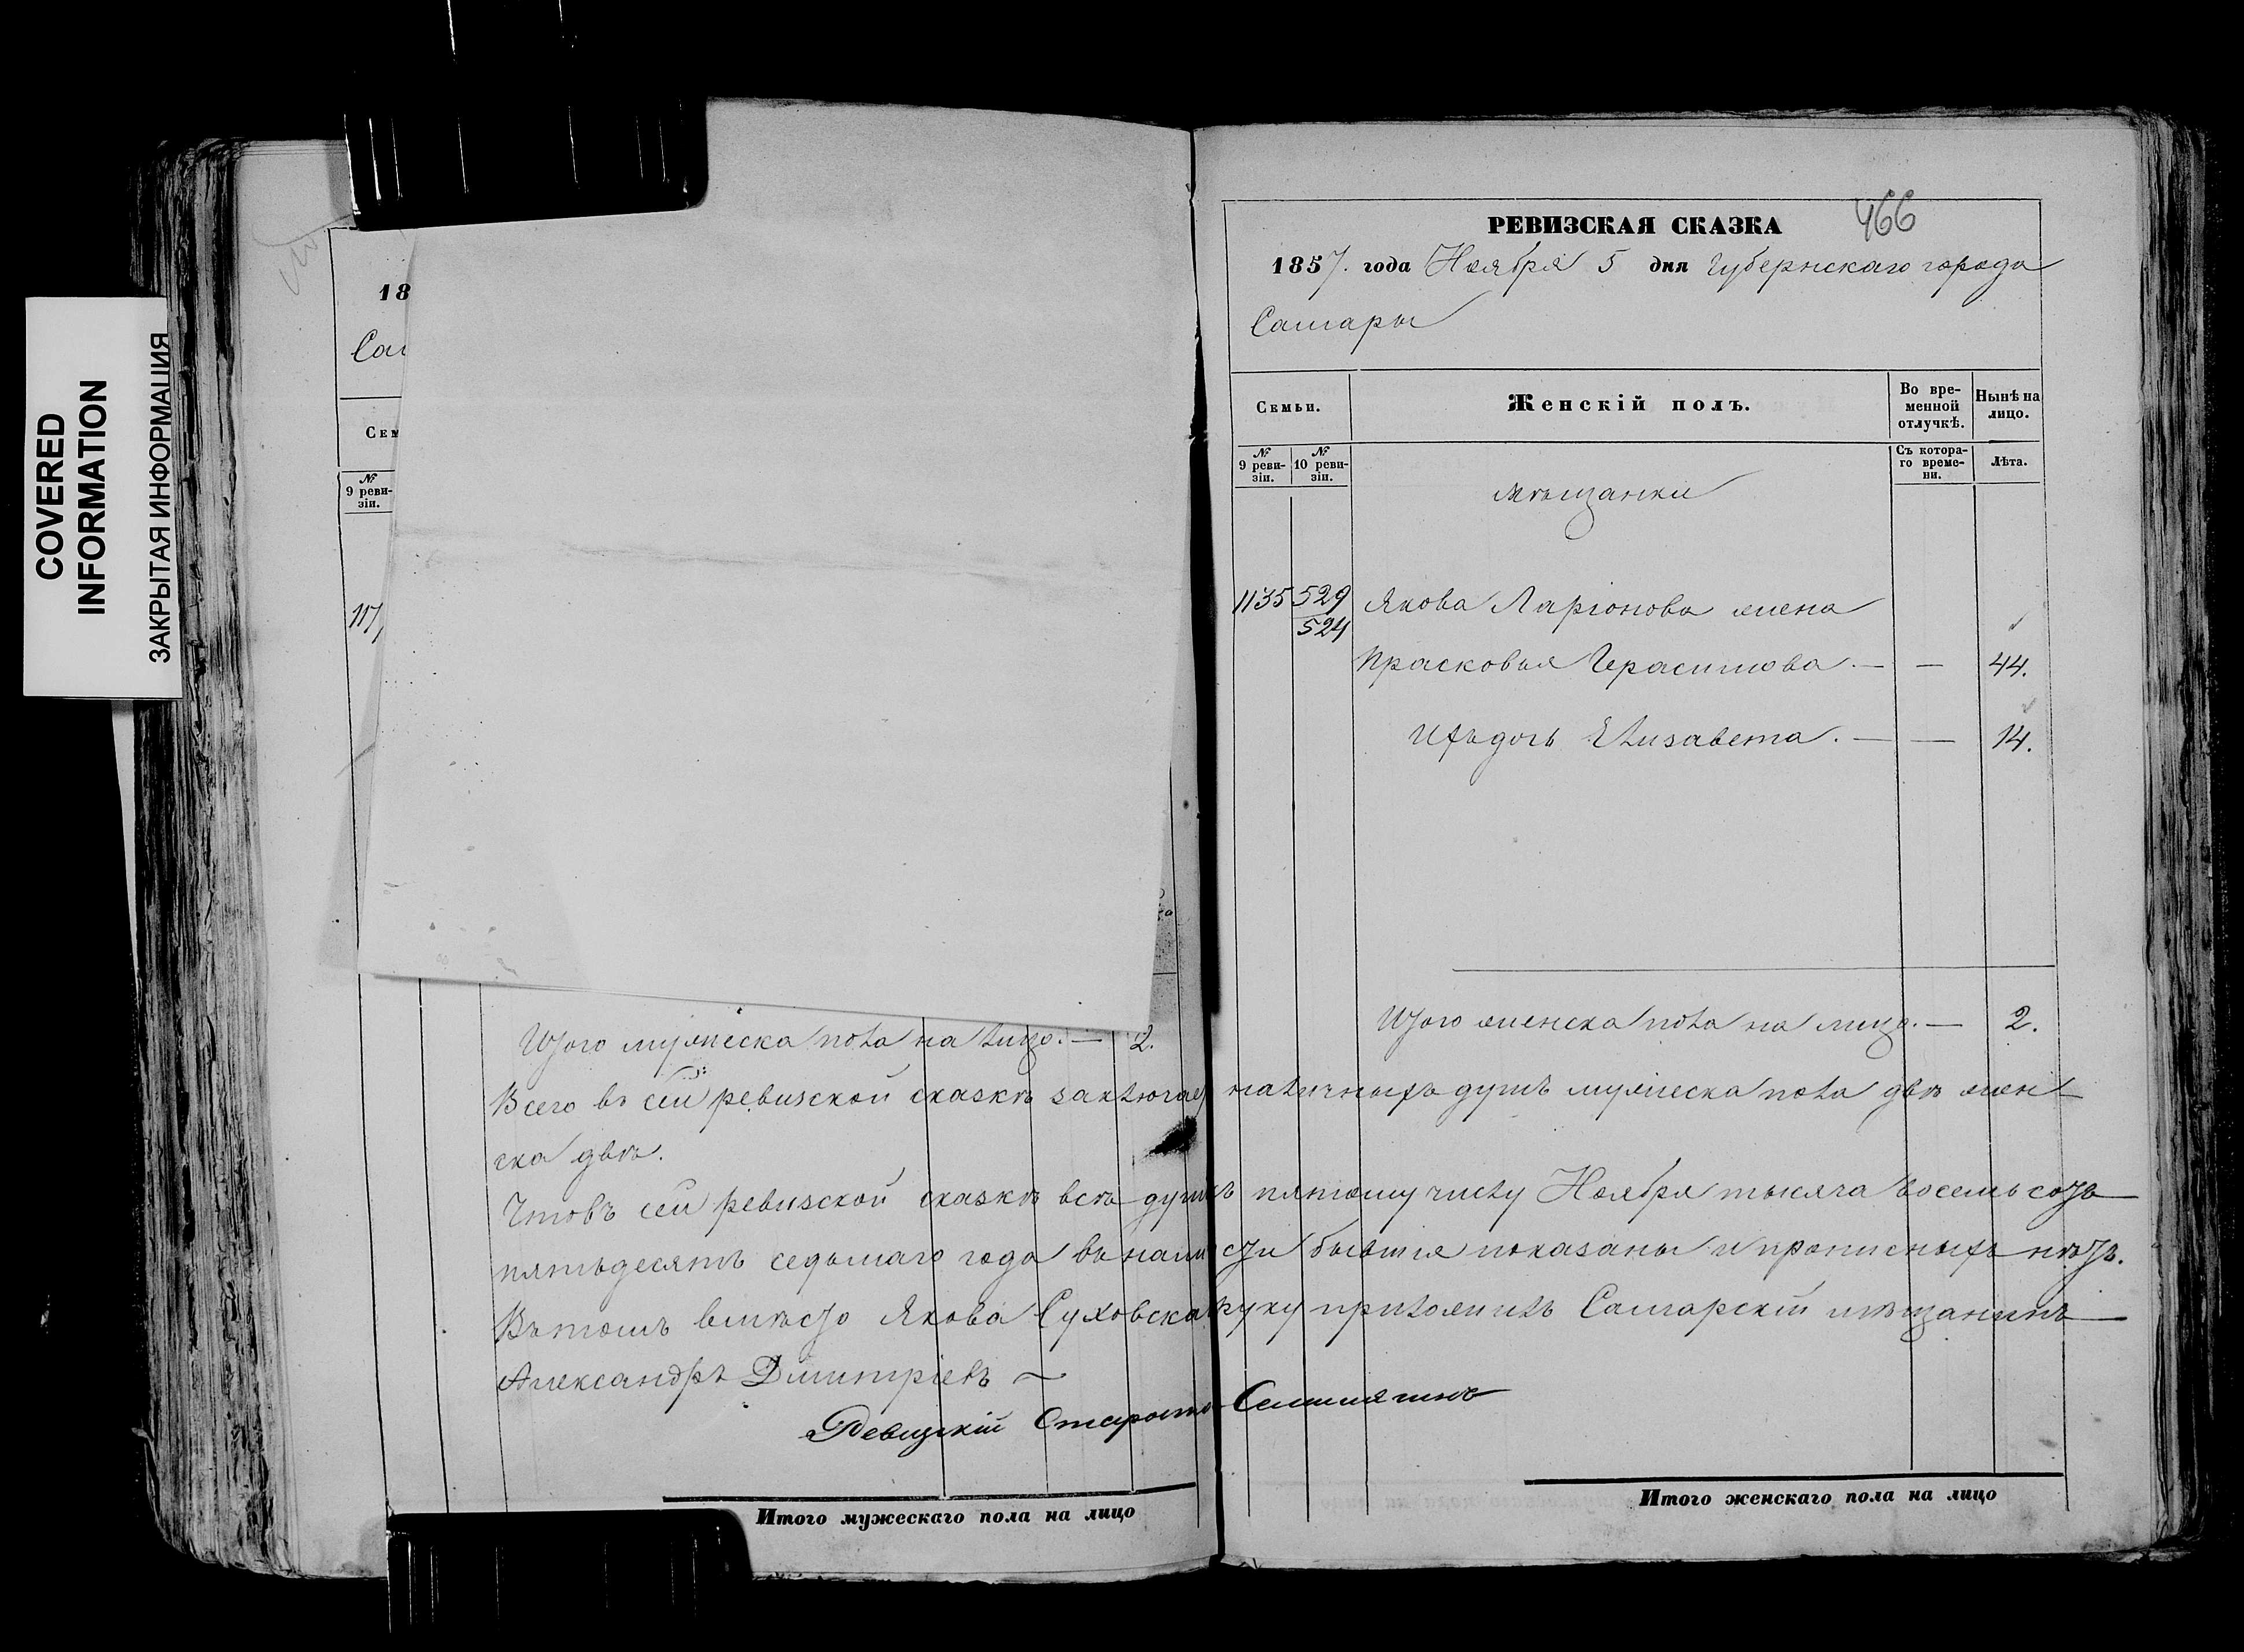 COVERED
INFORMATION
ЗАКРЫТАЯ ИНФОРМАЦИЯ
18
Сам
Сем
№
9 реви-
зіи.
Итого мужеска пола на лицо. — 2.
466
РЕВИЗСКАЯ СКАЗКА
1857. года Ноября 5 дня Губернскаго города
Самары
Семьи.
Женскій полъ.
Во вре-
менной
отлучкѣ.
Нынѣ на
лицо.
№
9 реви-
зіи.
№
10 реви-
зіи.
Съ котора-
го време-
ни.
Лѣта.
мѣщанки
1135 529 Якова Ларіонова жена
524
Прасковья Герасимова. — — 44.
Ихъ дочь Елизавета. — — 14.
Итого женска пола на лицо. — 2.
Всего въ сей ревизской сказкѣ заключает наличныхъ душъ мужеска пола двѣ жен-
ска двѣ.
Что въ сей ревизской сказкѣ всѣ души къ пятому числу Ноября тысяча восемь сотъ
пятьдесятъ седьмаго года въ наличности бывшія показаны и прописныхъ нѣтъ.
Въ томъ вмѣсто Якова Суховска руку приложилъ Самарскій мѣщанинъ
Александръ Дмитріевъ ~
Ревизкій Староста
Итого мужескаго пола на лицо
Итого женскаго пола на лицо